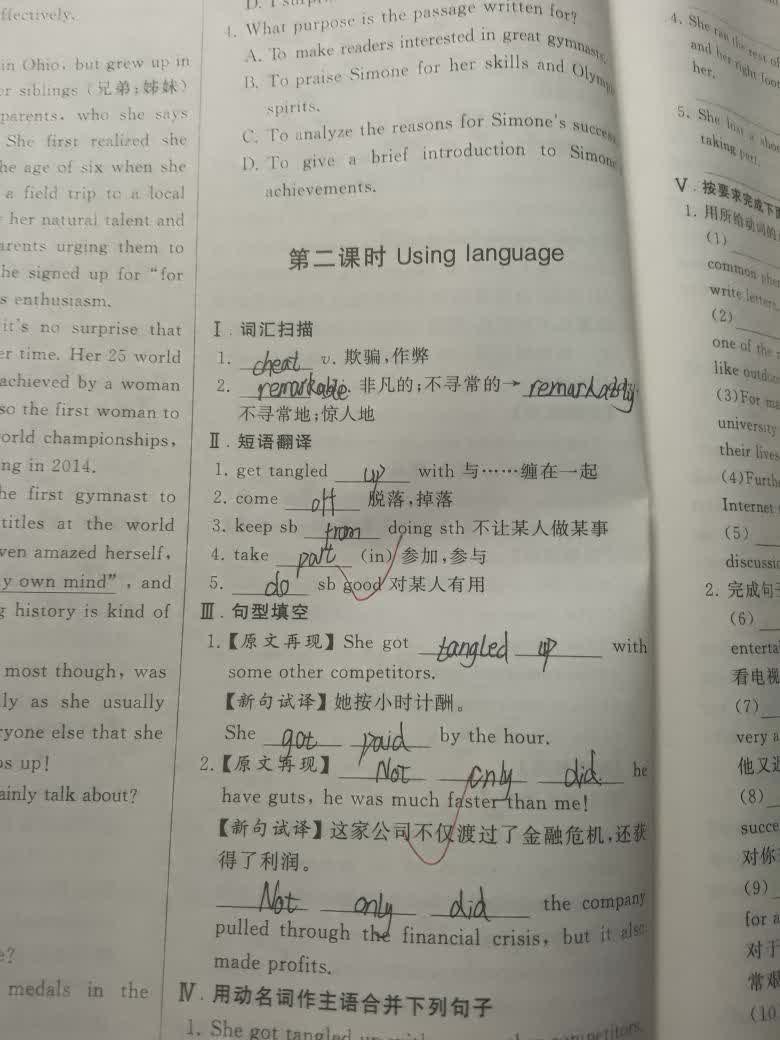 ffectively.
in Ohio, but grew up in
siblings (兄弟;姊妹)
parents, who she says
She first realized she
age of six when she
a field trip to a local
her natural talent and
urging them to
he signed up for "for
enthusiasm.
it's no surprise that
time. Her 25 world
achieved by a woman
so the first woman to
world championships,
ng in 2014.
he first gymnast to
titles at the world
ven amazed herself,
y own mind", and
history is kind of
most though, was
ly as she usually
ryone else that she
ps up!
ainly talk about?
medals in the
4. What purpose is the passage written for?
A. To make readers interested in great gymnasts.
B. To praise Simone for her skills and Olymp
spirits.
C. To analyze the reasons for Simone's success
D. To give a brief introduction to Simone
achievements.
第二课时 Using language
Ⅰ. 词汇扫描
1. cheat v. 欺骗,作弊
2. remarkable. 非凡的;不寻常的→
不寻常地;惊人地
Ⅱ. 短语翻译
1. get tangled up with 与……缠在一起
2. come off 脱落,掉落
3. keep sb from doing sth 不让某人做某事
4. take part (in) 参加,参与
5. do sb good 对某人有用
Ⅲ. 句型填空
1.【原文再现】She got tangled up with
some other competitors.
【新句试译】她按小时计酬。
She got paid by the hour.
2.【原文再现】Not only did he
have guts, he was much faster than me!
【新句试译】这家公司不仅渡过了金融危机,还获
得了利润。
Not only did the company
pulled through the financial crisis, but it also
made profits.
Ⅳ. 用动名词作主语合并下列句子
1. She got tangled up
4. She ran the rest of
and her right foot
her.
5. She lost a shoe
taking part.
Ⅴ. 按要求完成下
1. 用所给动词的
(1)
common
write letters
(2)
one of the
like outdoor
(3) For
university
their lives
(4)
Internet
(5)
2. 完成句子
(6)
看电视
(7)
very a
他又
(8)
succe
对你
(9)
for a
对于
常艰
(10